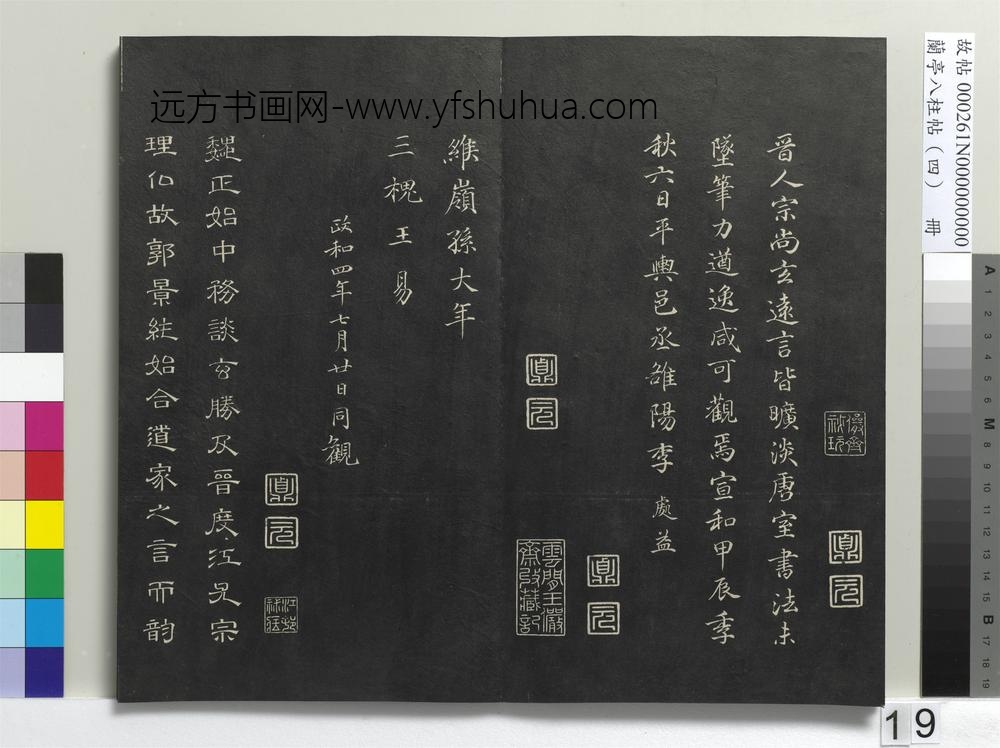 远方书画网-www.yfshuhua.com
故帖 000261N000000000
蘭亭八柱帖（四） 冊
晉人宗尚玄遠言皆曠淡唐室書法未
墜筆力遒逸咸可觀焉宣和甲辰季
秋六日平輿邑丞雒陽李處益
維嶺孫大年
三槐王易
政和四年七月廿日同觀
魏正始中務談玄勝及晉度江尤宗
理仏故郭景純始合道家之言而韵
鼎元
鼎元
鼎元
鼎元
雲間王儼齋收藏記
儼齋祕玩
A 1 2 3 4 5 6 M 8 9 10 11 12 13 14 15 B 17 18 19
19